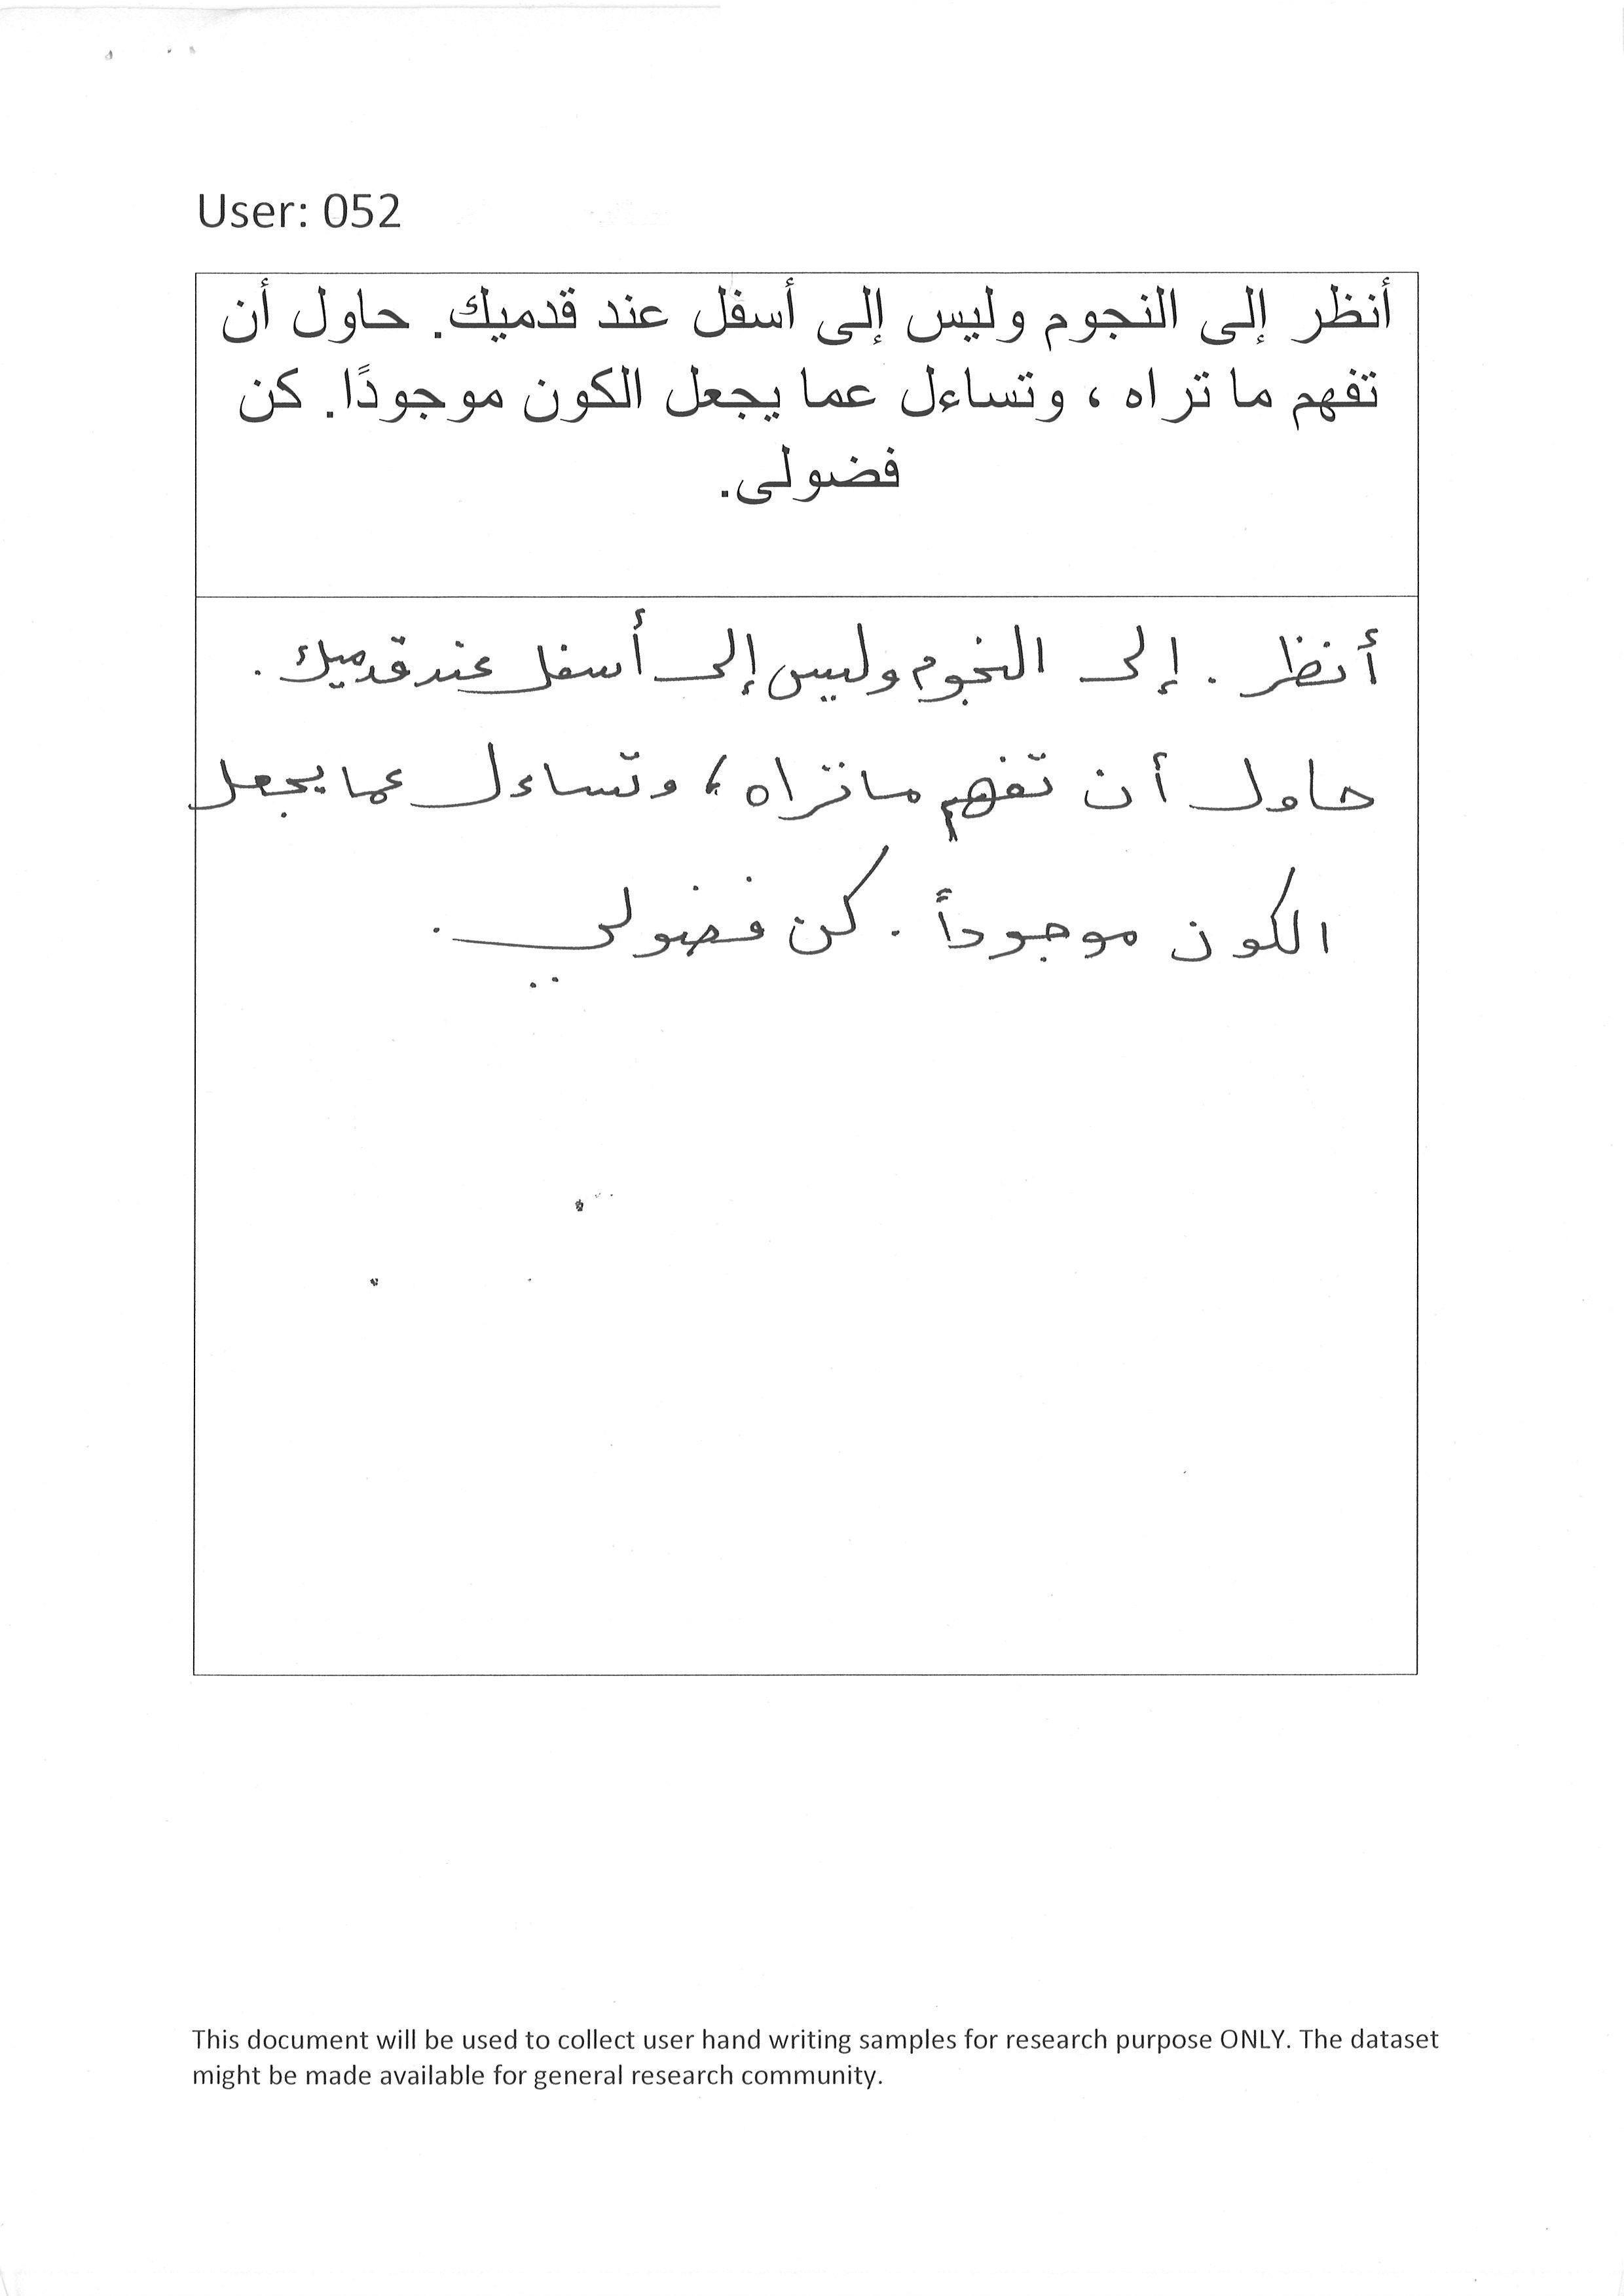 User: 052
أنظر إلى النجوم وليس إلى أسفل عند قدميك. حاول أن
تفهم ما تراه ، وتساءل عما يجعل الكون موجودًا. كن
فضولى.
أنظر . إلى النجوم وليس إلى أسفل عند قدميك .
حاول أن تفهم ما تراه ، وتساءل عما يجعل
الكون موجوداً . كن فضولي .
This document will be used to collect user hand writing samples for research purpose ONLY. The dataset
might be made available for general research community.